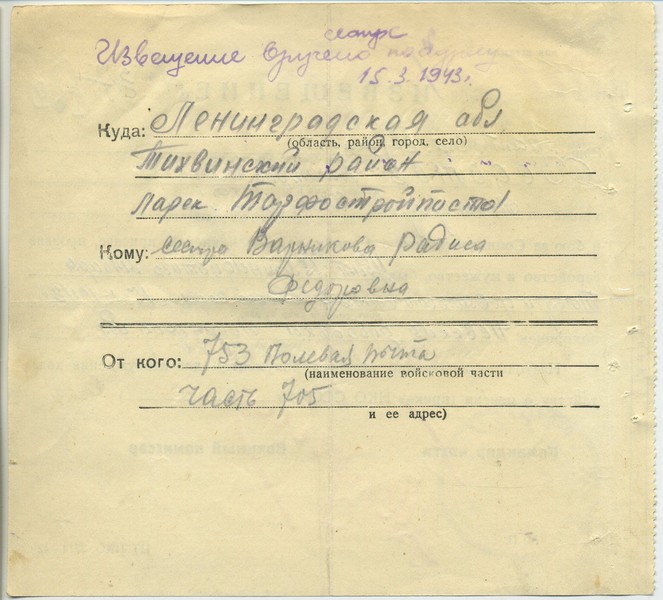 сестре
Извещение вручено
15.3.1943г.
Куда: Ленинградская обл
(область, район, город, село)
Тихвинский район
Кому: сестра Варникова
Федоровна
От кого: 753 Полевая почта
(наименование войсковой части
часть 705
и ее адрес)